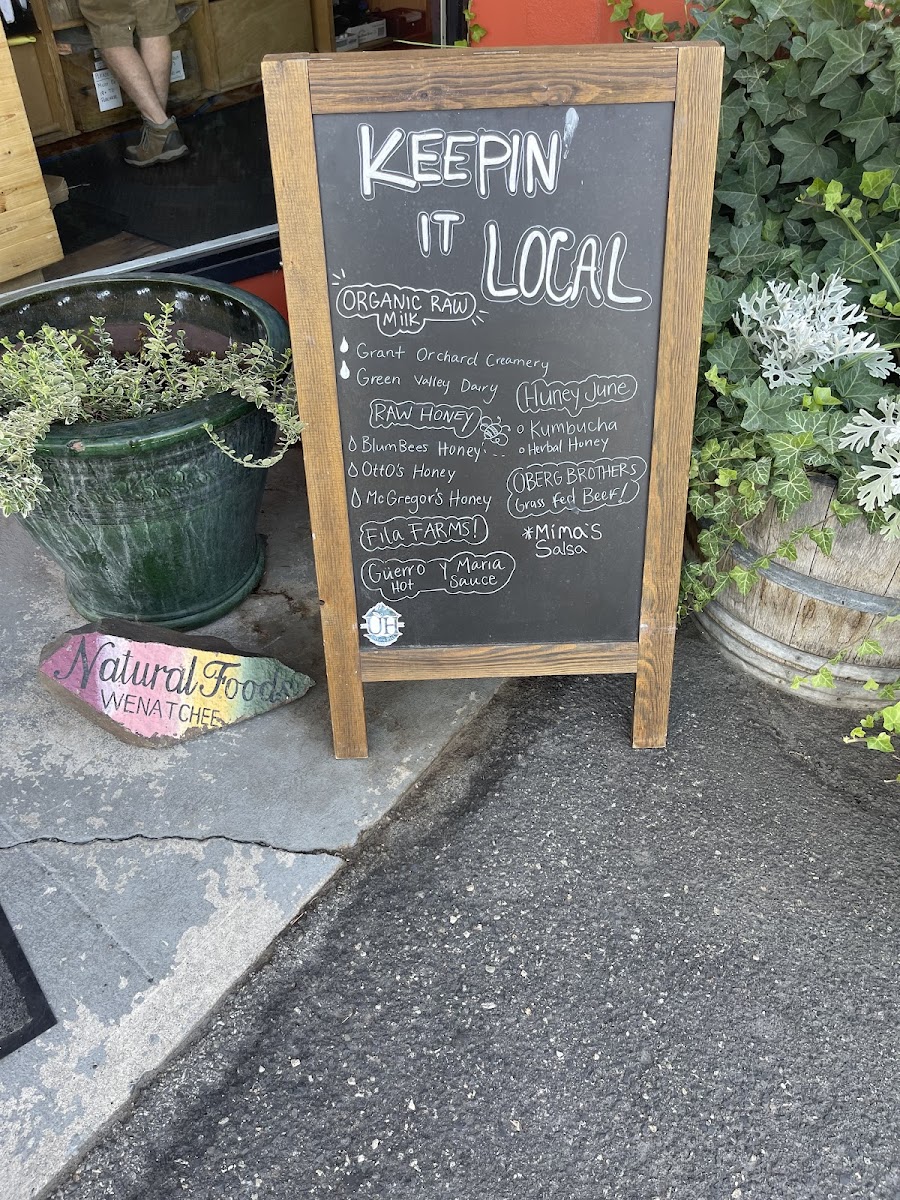 KEEPIN'
IT
LOCAL
ORGANIC RAW
MILK
Grant Orchard Creamery
Green Valley Dairy
RAW HONEY
BlumBees Honey
Otto's Honey
McGregor's Honey
Fila FARMS!
Güerro y Maria
Hot Sauce
Huney June
Kumbucha
Herbal Honey
OBERG BROTHERS
Grass Fed Beef!
*Mima's
Salsa
UH
Natural Foods
WENATCHEE